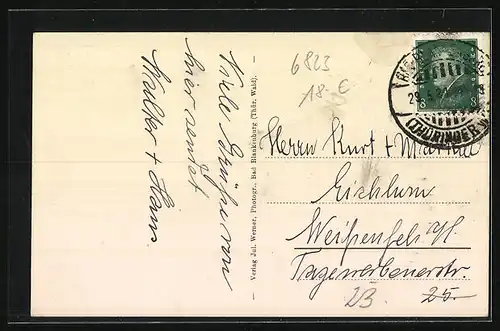 Viele Grüße von
hier sendet
Walter + Hans.
Verlag Jul. Werner, Photogr., Bad Blankenburg (Thür. Wald).
6823
18-€
8 8
29.
(THÜRINGER W
Herrn Kurt +
Eichhorn
Weißenfels a/S.
Tagewerbenerstr.
25.